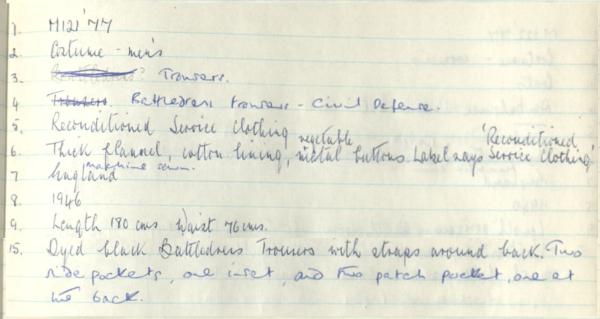 1. M121'77
2. Costume - men's
3. Trousers.
4. Trousers. Battledress trousers - Civil Defence.
5. Reconditioned Service Clothing
6. Thick flannel, cotton lining, vegetable metal buttons. Label says 'Reconditioned Service Clothing'
7. England machine sewn.
8. 1946
9. Length 180 cms Waist 76 cms.
15. Dyed black Battledress Trousers with straps around back. Two
side pockets, one inset, and two patch pocket, one at
the back.